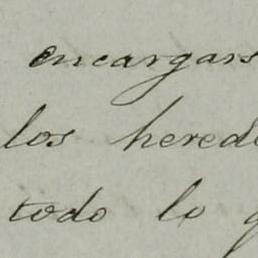 encargars
los hered
todo lo